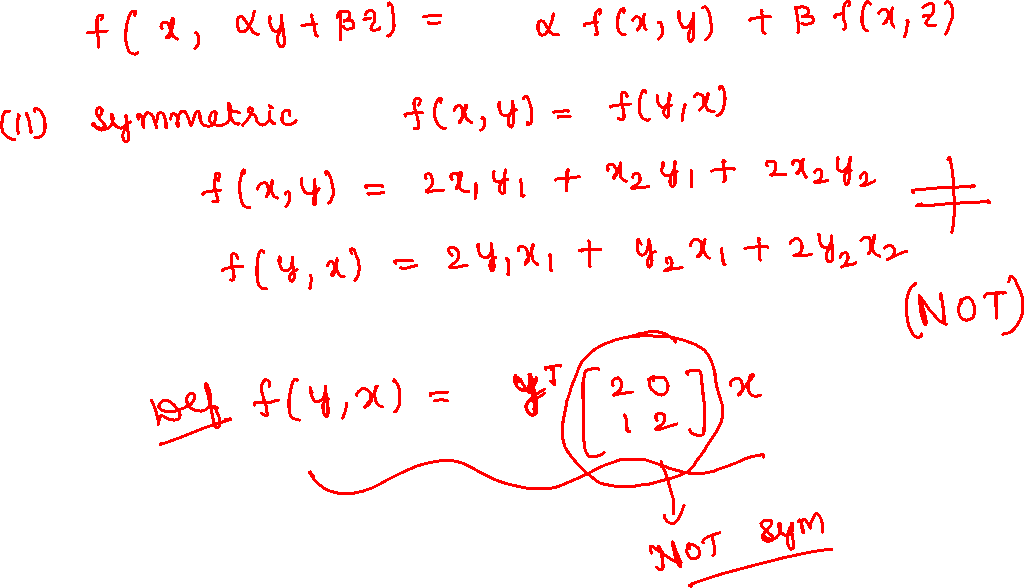 f(x, αy + βz) = α f(x,y) + β f(x,z)
(ii) symmetric f(x,y) = f(y,x)
f(x,y) = 2x₁y₁ + x₂y₁ + 2x₂y₂ ≠
f(y,x) = 2y₁x₁ + y₂x₁ + 2y₂x₂
(NOT)
Def f(y,x) = yᵀ [2 0
1 2] x
NOT sym